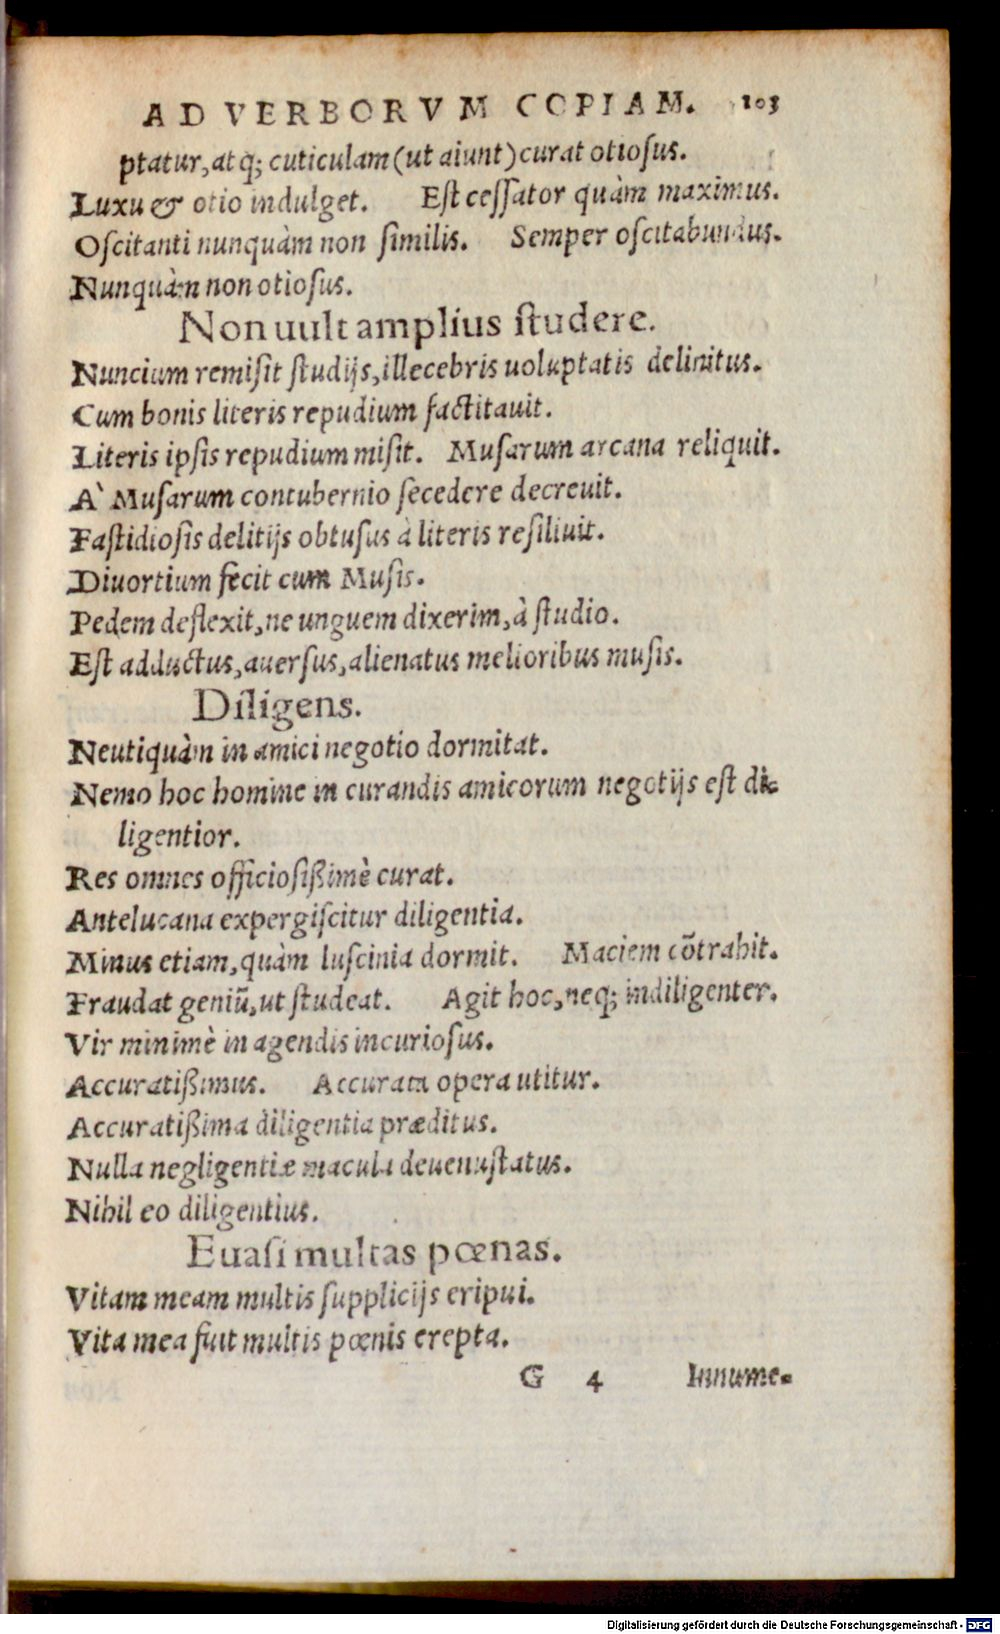 AD VERBORVM COPIAM. 103
ptatur, atq; cuticulam (ut aiunt) curat otiosus.
Luxu & otio indulget. Est cessator quàm maximus.
Oscitanti nunquàm non similis. Semper oscitabundus.
Nunquàm non otiosus.
Non uult amplius studere.
Nuncium remisit studijs, illecebris uoluptatis delinitus.
Cum bonis literis repudium factitauit.
Literis ipsis repudium misit. Musarum arcana reliquit.
A` Musarum contubernio secedere decreuit.
Fastidiosis delitijs obtusus à literis resiliuit.
Diuortium fecit cum Musis.
Pedem deflexit, ne unguem dixerim, à studio.
Est adductus, auersus, alienatus melioribus musis.
Diligens.
Neutiquàm in amici negotio dormitat.
Nemo hoc homine in curandis amicorum negotijs est di-
ligentior.
Res omnes officiosißimè curat.
Antelucana expergiscitur diligentia.
Minus etiam, quàm luscinia dormit. Maciem cõtrahit.
Fraudat geniũ, ut studeat. Agit hoc, neq; indiligenter.
Vir minimè in agendis incuriosus.
Accuratißimus. Accurata opera utitur.
Accuratißima diligentia præditus.
Nulla negligentiæ macula deuenustatus.
Nihil eo diligentius.
Euasi multas pœnas.
Vitam meam multis supplicijs eripui.
Vita mea fuit multis pœnis erepta.
G 4 Innume-
Digitalisierung gefördert durch die Deutsche Forschungsgemeinschaft - DFG